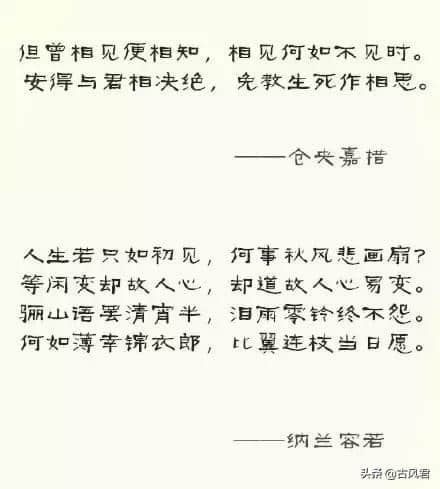 但曾相见便相知，相见何如不见时。
安得与君相决绝，免教生死作相思。
——仓央嘉措
人生若只如初见，何事秋风悲画扇？
等闲变却故人心，却道故人心易变。
骊山语罢清宵半，泪雨零铃终不怨。
何如薄幸锦衣郎，比翼连枝当日愿。
——纳兰容若
头条@古风君